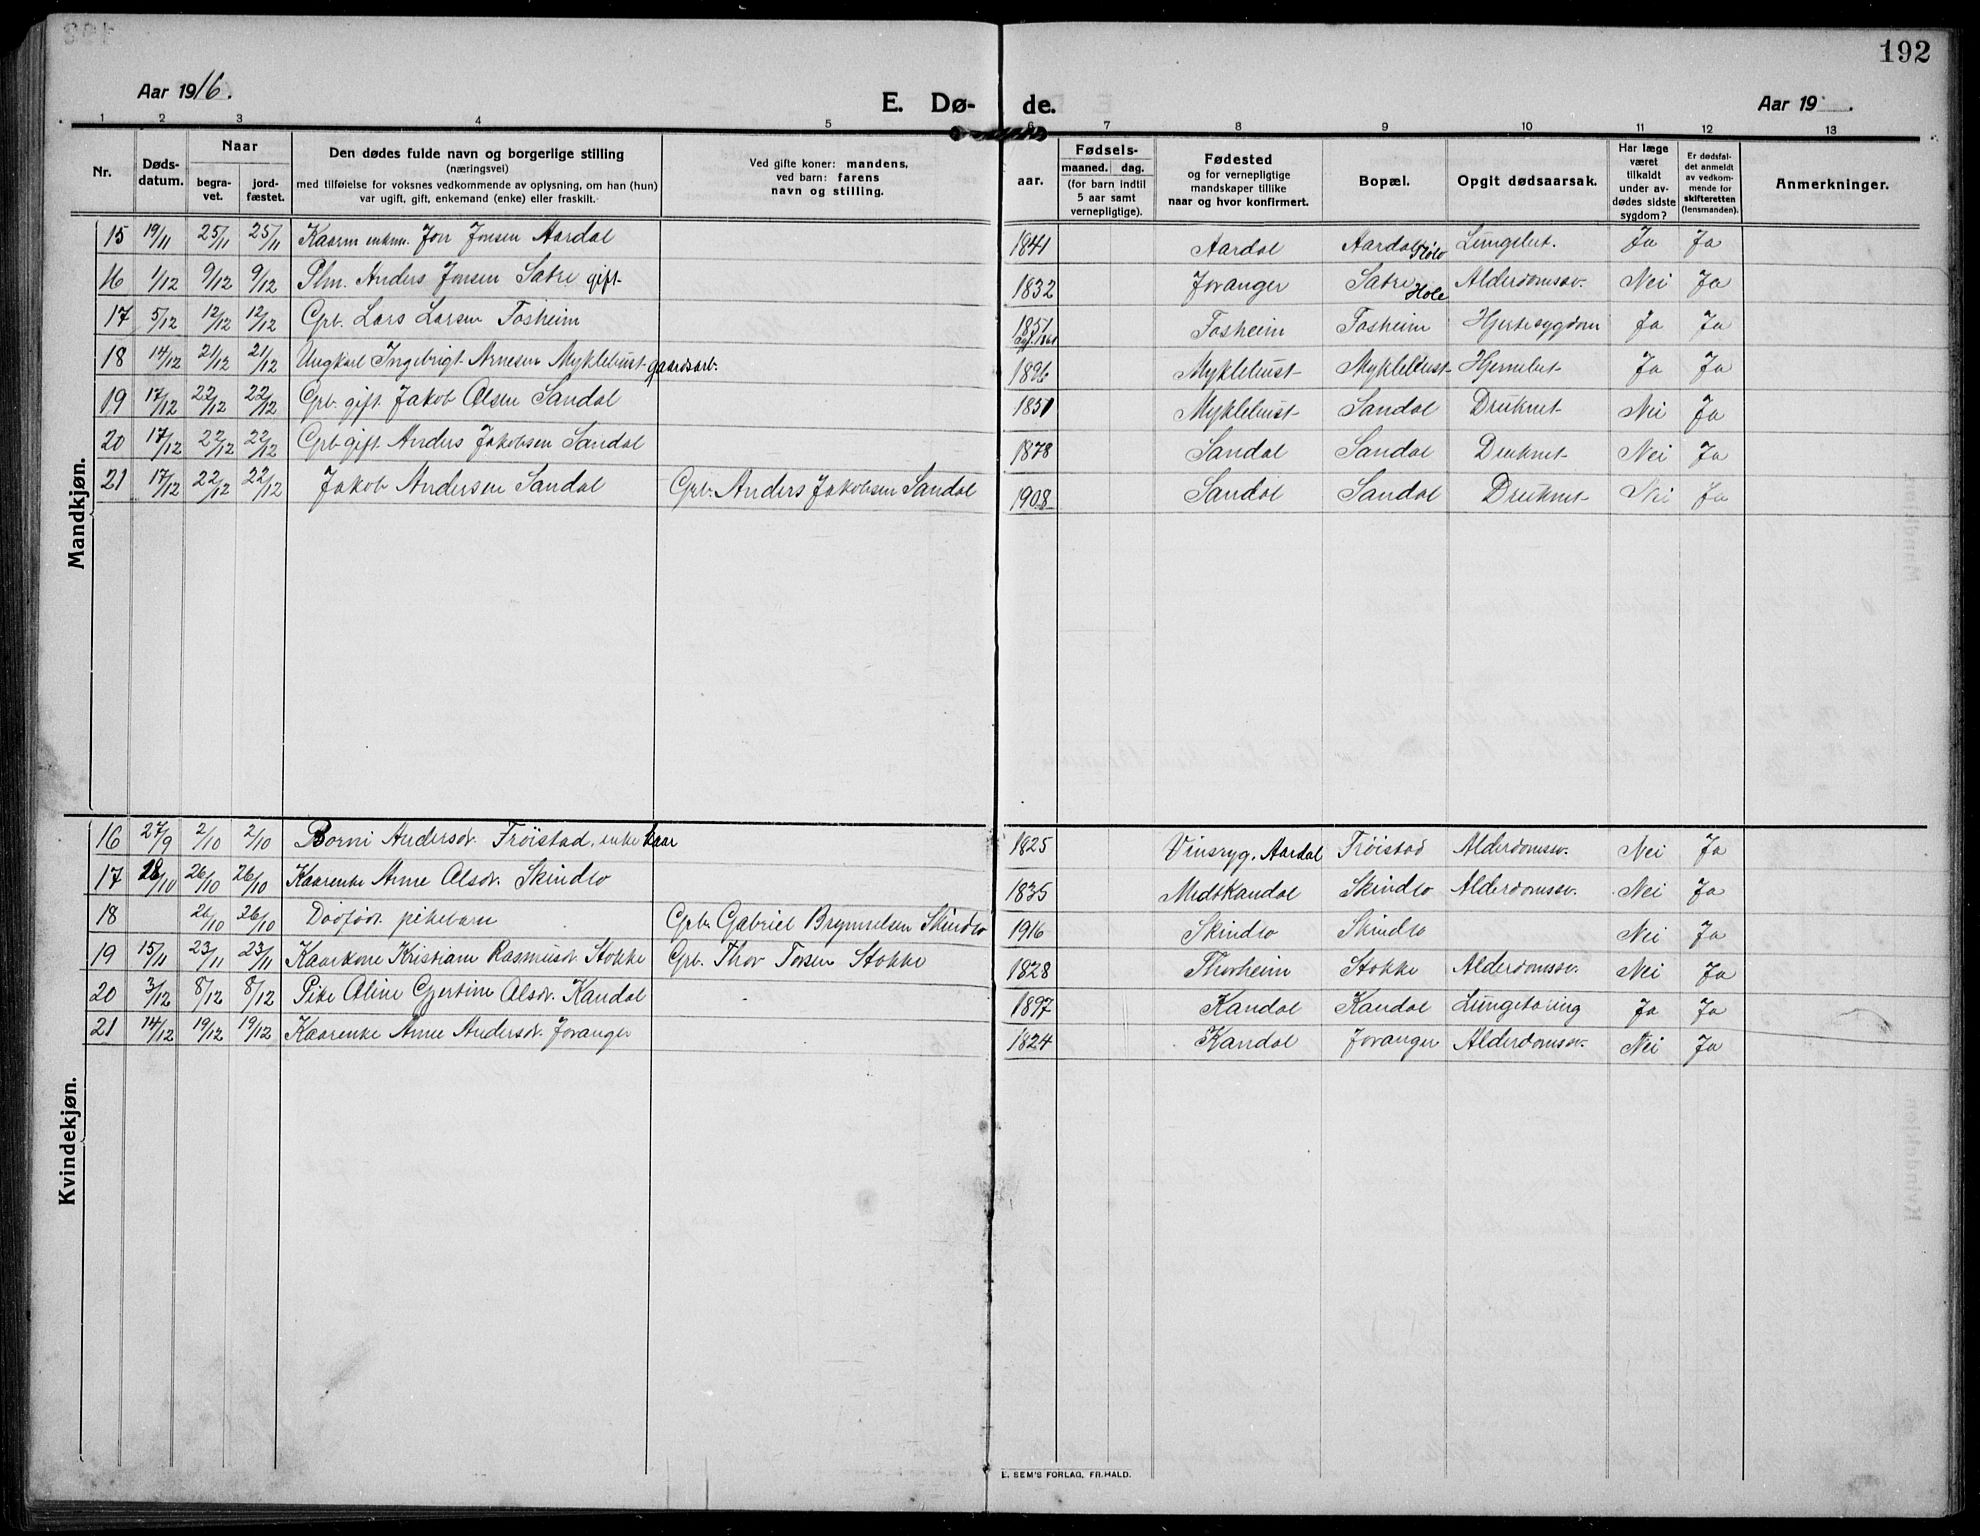 192
Aar 1916.
E. Dø- de.
Aar 19 .
1 2 3 4 5 6 7 8 9 10 11 12 13
Nr.
Døds-
datum.
Naar
begra-
vet.
jord-
fæstet.
Den dødes fulde navn og borgerlige stilling
(næringsvei)
med tilføielse for voksnes vedkommende av oplysning, om han (hun)
var ugift, gift, enkemand (enke) eller fraskilt.
Ved gifte koner: mandens,
ved barn: farens
navn og stilling.
Fødsels-
aar.
maaned. dag.
(for barn indtil
5 aar samt
vernepligtige).
Fødested
og for vernepligtige
mandskaper tillike
naar og hvor konfirmert.
Bopæl.
Opgit dødsaarsak.
Har læge
været
tilkaldt
under av-
dødes sidste
sygdom?
Er dødsfal-
det anmeldt
av vedkom-
mende for
skifteretten
(lensmanden).
Anmerkninger.
Mandkjøn.
15 19/11 25/11 25/11 Kaarm enkm. Jon Jonsen Aardal 1841 Aardal Aardal Lungebet. Ja Ja
16 1/12 9/12 9/12 Plm. Anders Jonsen Sætre gift 1832 Jovanger Sætre Hole Alderdomssv. Nei Ja
17 5/12 12/12 12/12 Grb. Lars Larsen Fosheim 1851 Fosheim Fosheim Hjertesygdom Ja Ja
18 14/12 21/12 21/12 Ungkarl Ingebrigt Arnesen Myklebust gaardsarb. 1896 Myklebust Myklebust Hjernebet. Ja Ja
19 17/12 22/12 22/12 Grb. gift Jakob Olsen Sandal 1851 Myklebust Sandal Druknet Nei Ja
20 17/12 22/12 22/12 Grb gift Anders Jakobsen Sandal 1878 Sandal Sandal Druknet Nei Ja
21 17/12 22/12 22/12 Jakob Andersen Sandal Grb. Anders Jakobsen Sandal 1908 Sandal Sandal Druknet Nei Ja
Kvindekjøn.
16 27/9 2/10 2/10 Borni Andersdr. Frøistad, enke kaar 1825 Vinsryg, Aardal Frøistad Alderdomssv. Nei Ja
17 18/10 26/10 26/10 Kaarenke Anne Olsdr. Skindlo 1835 Midtkandal Skindlo Alderdomssv. Nei Ja
18 26/10 26/10 Dødfødt pikebarn Grb. Gabriel Brynnelsen Skindlo 1916 Skindlo Skindlo Nei Ja
19 15/11 23/11 23/11 Kaarkone Kristiane Rasmusdr. Stokke Grb. Thor Torsen Stokke 1828 Thorheim Stokke Alderdomssv. Nei Ja
20 3/12 8/12 8/12 Pike Oline Gjertine Olsdr. Kandal 1897 Kandal Kandal Lungetæring Ja Ja
21 14/12 19/12 19/12 Kaarenke Anne Andersdr. Jovanger 1824 Kandal Jovanger Alderdomssv. Nei Ja
E. SEM'S FORLAG, FR.HALD.